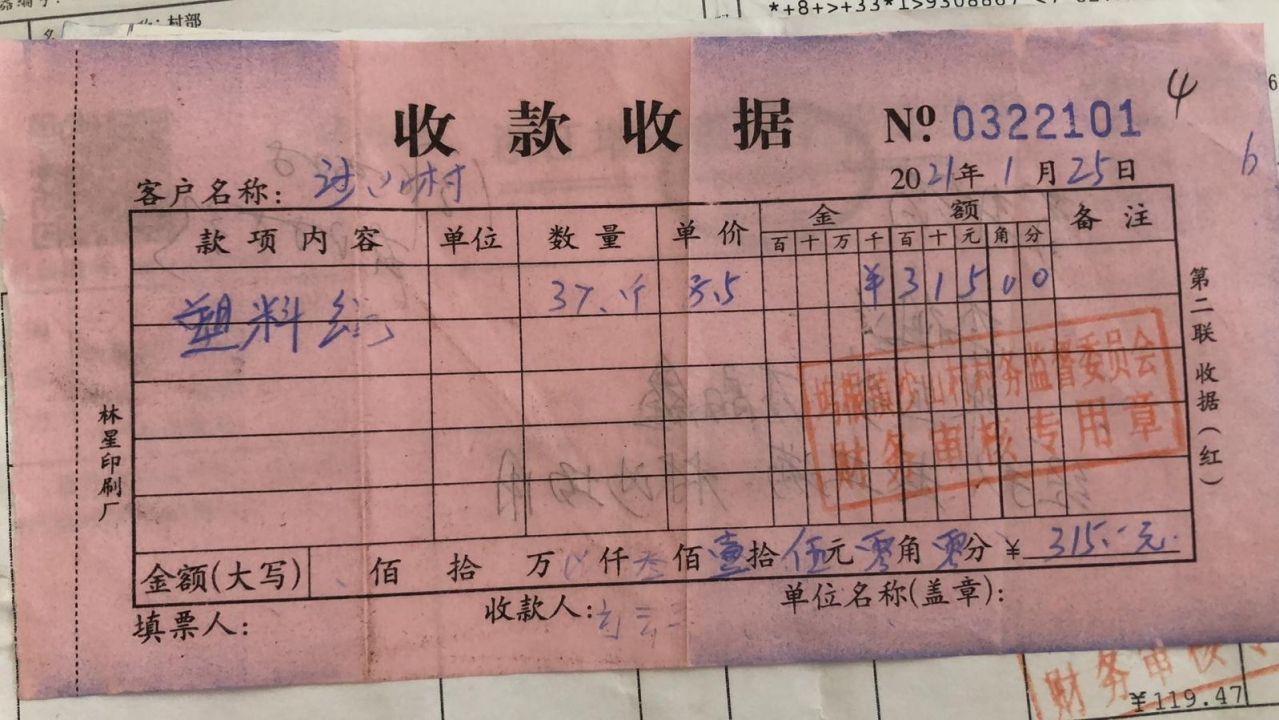 村部
*+8+>+33*1>9308867
4
收款收据 № 0322101
6
客户名称: 沙山村 2021年1月25日
款项内容 单位 数量 单价 金额 备注
百 十 万 千 百 十 元 角 分
塑料 37.斤 ¥ 3 1 5 0 0
坞镇沙山村村务监督委员会
财务审核专用章
金额(大写) 佰 拾 万 仟 叁佰 壹拾 伍元 零角 零分 ¥ 315.元
填票人: 收款人: 单位名称(盖章):
林星印刷厂
第二联 收据(红)
财务审核专
¥119.47